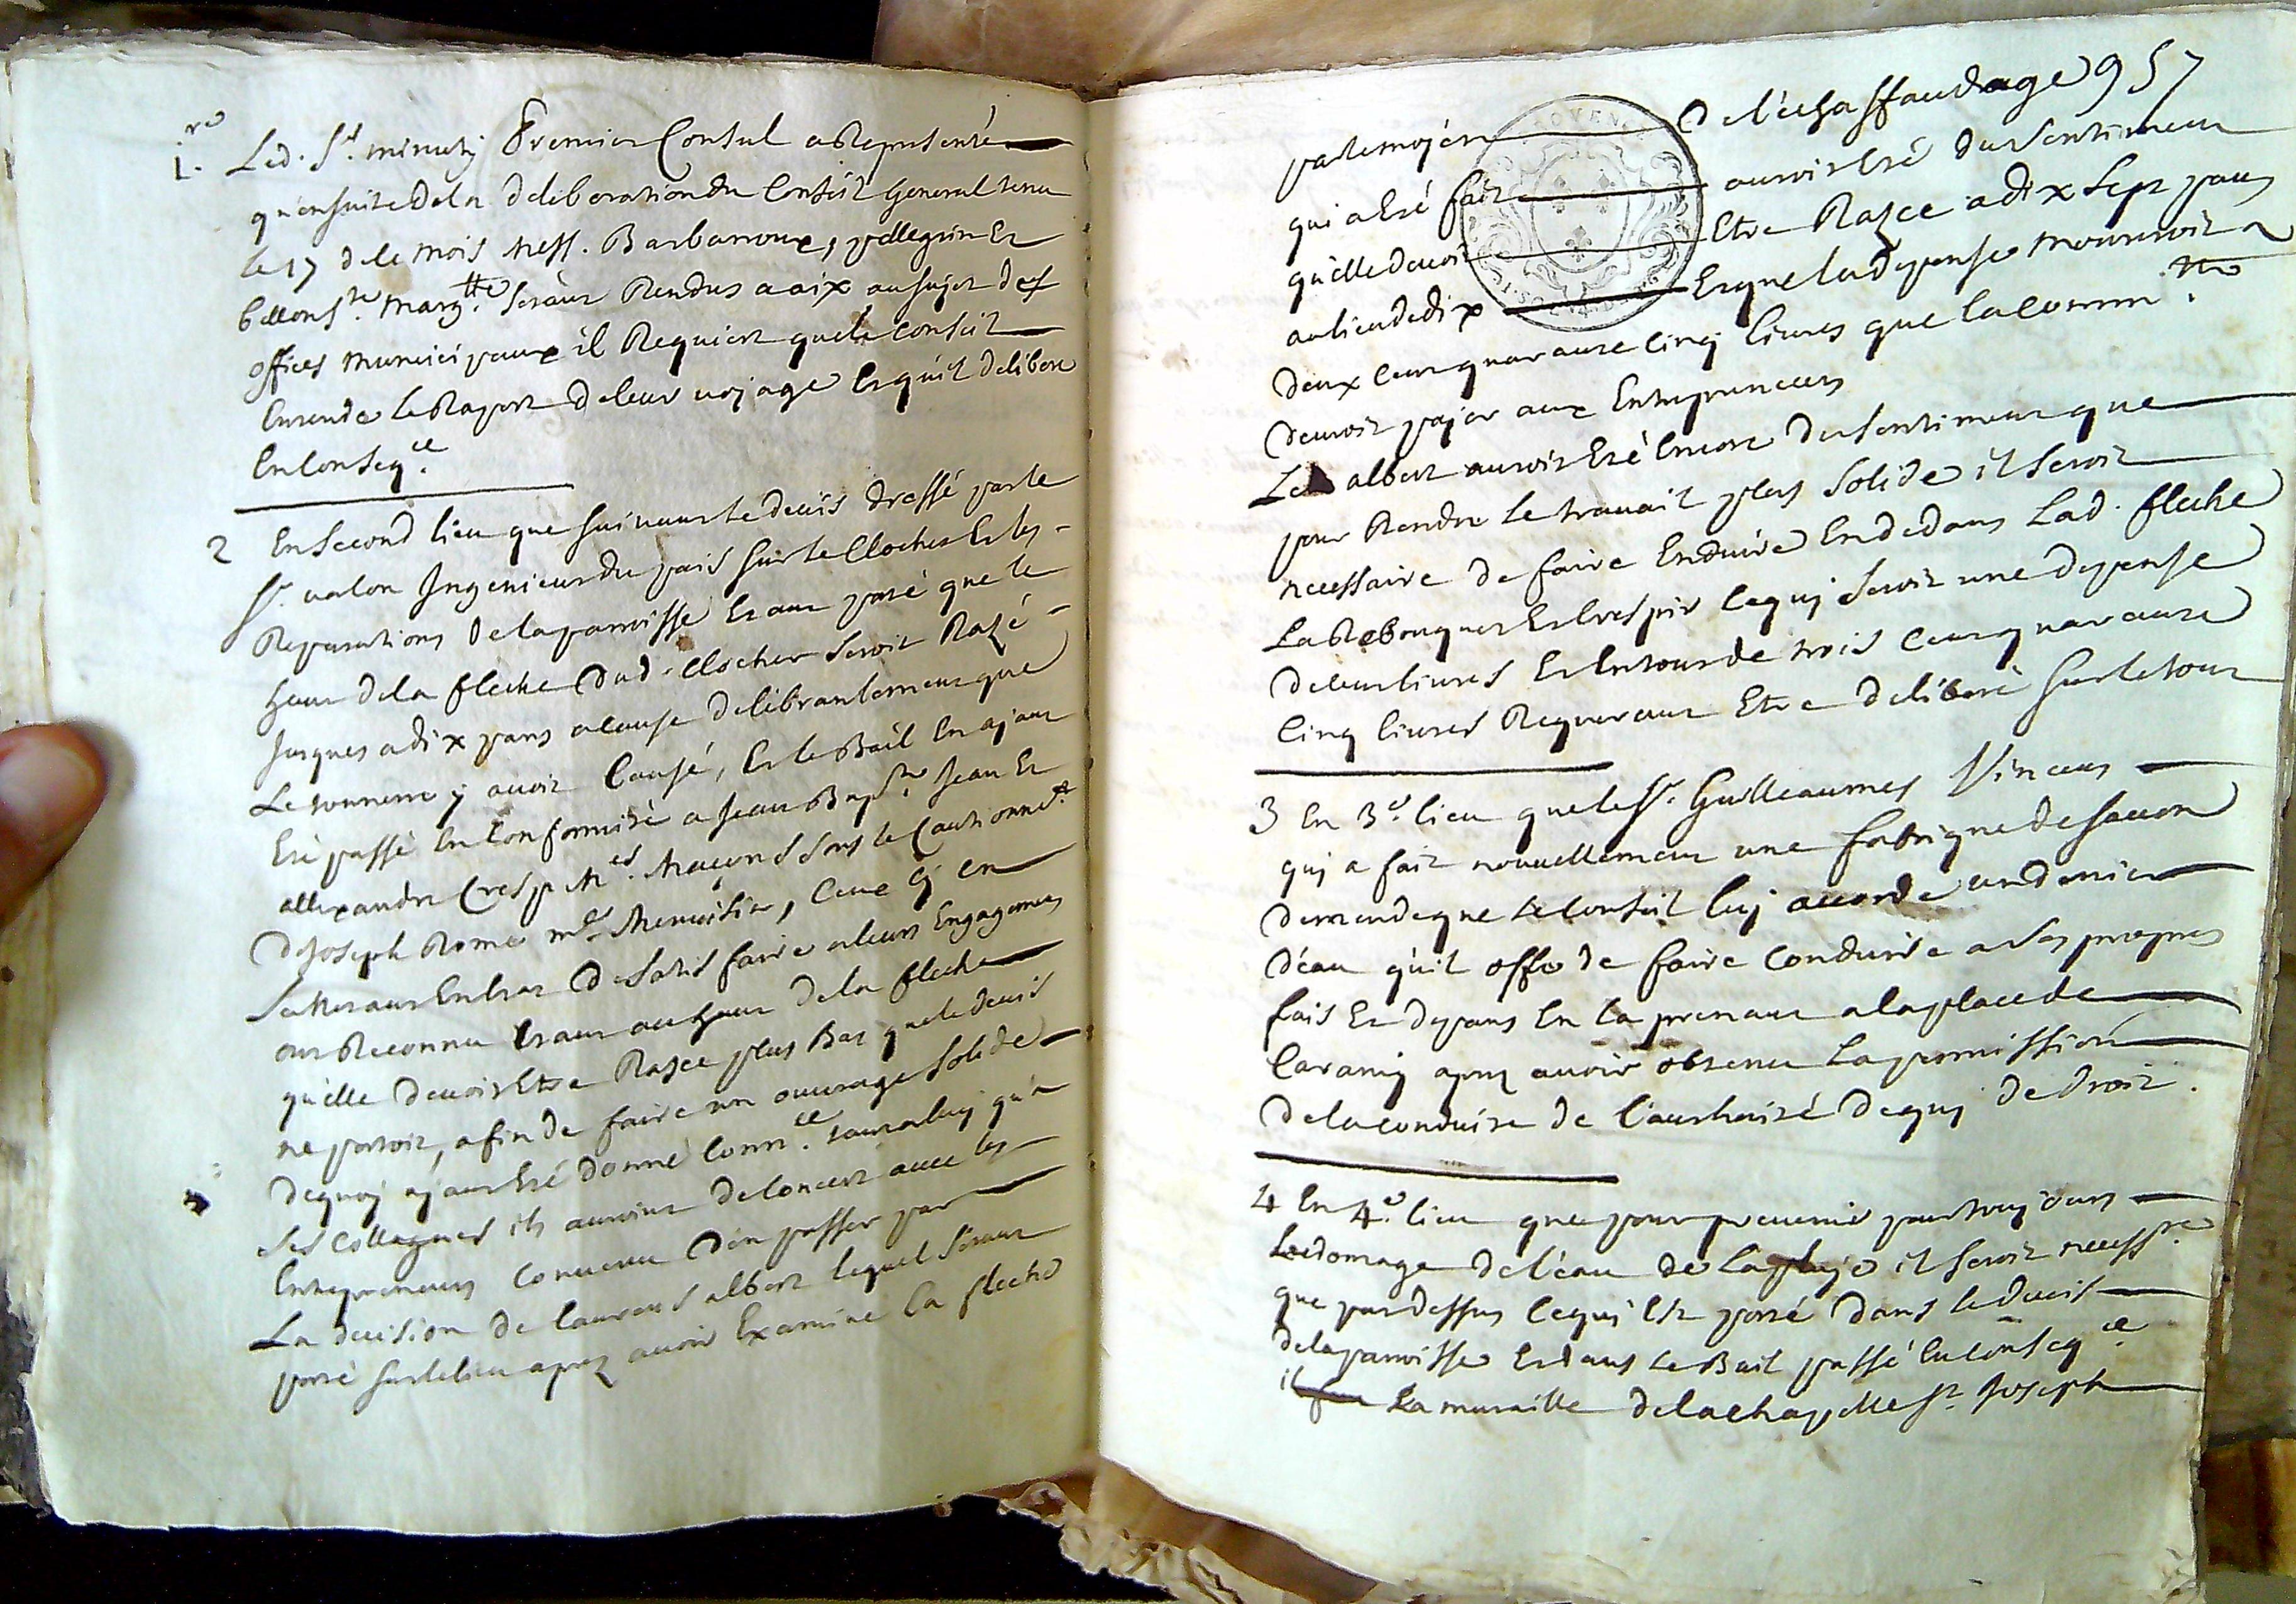 1.re Led. Sr. minuty Premier Consul a Representé
qu'ensuite dela deliberation du Conseil General tenu
le 17 de ce mois mess. Barbaroux, pellegrin Et
offices municipaux il Requiert que le conseil
Entende le Raport de leur voyage Et qu'il delibere
En Conseq.ce
2 En Second lieu que suivant le devis dressé par le
Sr. valon Ingenieur du païs sur le Clocher Et les
Reparations de la parroisse Etant porté que le
haut de la fleche dud. Clocher seroit Razé
jusques a dix pans a cause de l'ébranlement que
Le tonnerre y avoit Causé, Et le Bail En ayant
Eté passé En Conformité a Jean Bap.te Jean Et
allexandre Crespi M.es Maçons sous le Cautionne.t
de Joseph Rome m.e Menuisier, Ceux cy en
Se mettant En Etat de Satisfaire a leurs Engagemens
ont Reconnu Etant au haut de la fleche
qu'elle devoit Etre Razée plus Bas que le devis
ne portoit, afin de faire un ouvrage Solide
de quoy ayant Eté donné Conn.ce tant a luy qu'a
ses Collegues ils auroint de Concert avec les
Entrepreneurs Convenu d'en passer par
La decision de laurens albert lequel S'etant
porté sur le lieu aprez avoir Examiné la fleche
par le moyen de l'echaffaudage 957
qui a Eté fait auroit Eté du Sentiment
qu'elle devoit Etre Razée a dix Sept pans
au lieu de dix Et que la depense monteroit a
deux Cent quarante Cinq livres que la Comm.té
devroit payer aux Entrepreneurs
Led albert auroit Eté Encore du Sentiment que
pour Rendre le travail plus Solide il Seroit
necessaire de faire Enduire En dedans Lad. fleche
La Rebouquer Et Crespir Ce quy Seroit une depense
de Cent livres Et En tout de trois Cent quarante
Cinq livres Requerant Etre deliberé sur le tout
3 En 3.e lieu que le Sr. Guilleaumes Vincens
quy a fait nouvellement une fabrique de Savon
demande que le Conseil luy accorde un denier
d'eau qu'il offre de faire Conduire a Ses propres
frais Et depans En la prenant a la place de
Caramy aprez avoir obtenu la permission
de la conduire de l'authorité de quy de droit.
4 En 4.e lieu que pour prevenir pour toujours
Le domage de l'eau de la pluye il seroit necess.re
que par dessus Ce qui Est porté dans le devis
de la parroisse Et dans le Bail passé En Conseq.ce
La muraille de la chapelle St. Joseph